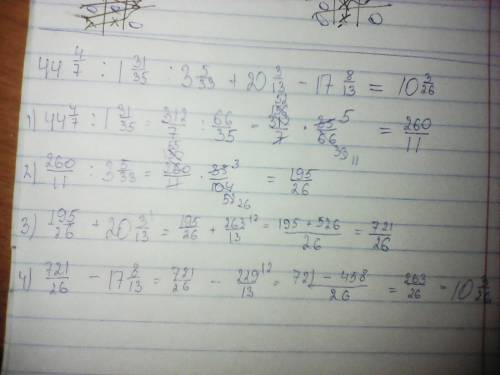 44 4/7 : 1 31/35 : 3 5/33 + 20 3/13 - 17 8/13 = 10 3/26
1) 44 4/7 : 1 31/35 = 312/7 : 66/35 = 312/7 · 35/66 = 260/11
2) 260/11 : 3 5/33 = 260/11 · 33/104 = 195/26
3) 195/26 + 20 3/13 = 195/26 + 263/13 = 195 + 526/26 = 721/26
4) 721/26 - 17 8/13 = 721/26 - 229/13 = 721 - 458/26 = 263/26 = 10 3/26